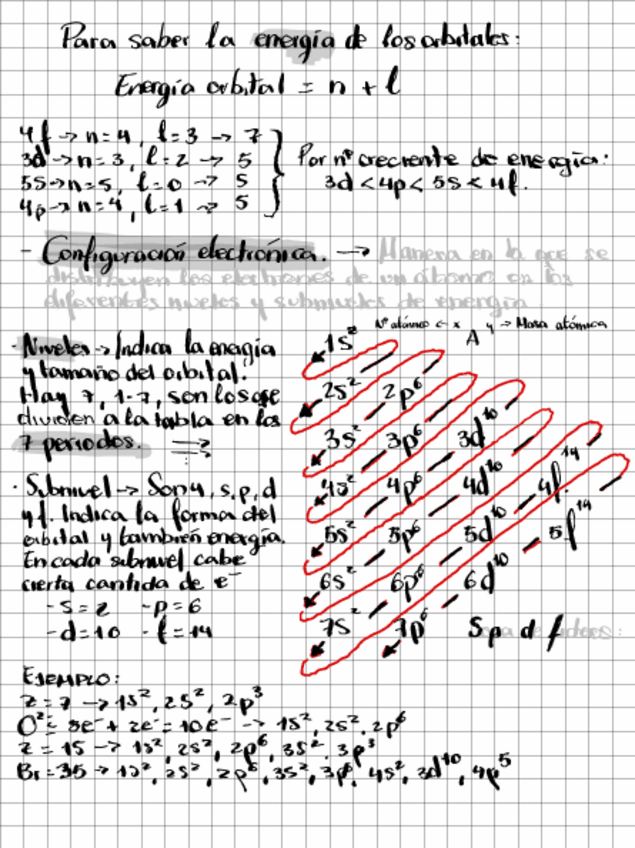 Para saber la energía de los orbitales:
Energía orbital = n + l
4f -> n=4, l=3 -> 7
3d -> n=3, l=2 -> 5
5s -> n=5, l=0 -> 5
4p -> n=4, l=1 -> 5
Por nº creciente de energía:
3d < 4p < 5s < 4f.
- Configuración electrónica. -> Manera en la que se
distribuyen los electrones de un átomo en los
diferentes niveles y subniveles de energía
· Niveles -> Indica la energía
y tamaño del orbital.
Hay 7, 1-7, son los que
dividen a la tabla en los
7 periodos. =>
· Subnivel -> Son 4, s, p, d
y f. Indica la forma del
orbital y también energía.
En cada subnivel cabe
cierta cantida de e⁻
- s = 2 - p = 6
- d = 10 - f = 14
Nº atómico <- x A y -> Masa atómica
1s²
2s² 2p⁶
3s² 3p⁶ 3d¹⁰
4s² 4p⁶ 4d¹⁰ 4f¹⁴
5s² 5p⁶ 5d¹⁰ 5f¹⁴
6s² 6p⁶ 6d¹⁰
7s² 7p⁶ S p d f
EJEMPLO:
Z = 7 -> 1s², 2s², 2p³
O²⁻ = 8e⁻ + 2e⁻ = 10e⁻ -> 1s², 2s², 2p⁶
Z = 15 -> 1s², 2s², 2p⁶, 3s², 3p³
Br = 35 -> 1s², 2s², 2p⁶, 3s², 3p⁶, 4s², 3d¹⁰, 4p⁵